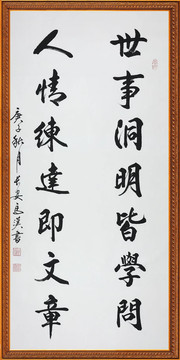 世事洞明皆學問
人情練達即文章
庚子秋月